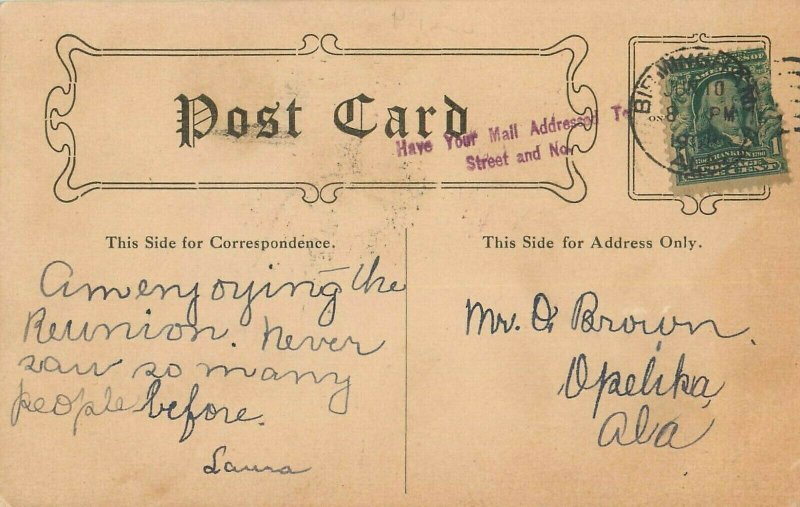 Post Card
Have Your Mail Addressed To
Street and No.
BIRMINGHAM
10
8 PM
FRANKLIN
This Side for Correspondence.
This Side for Address Only.
Am enjoying the
Reunion. Never
saw so many
people before.
Laura
Mr. O. Brown.
Opelika,
Ala